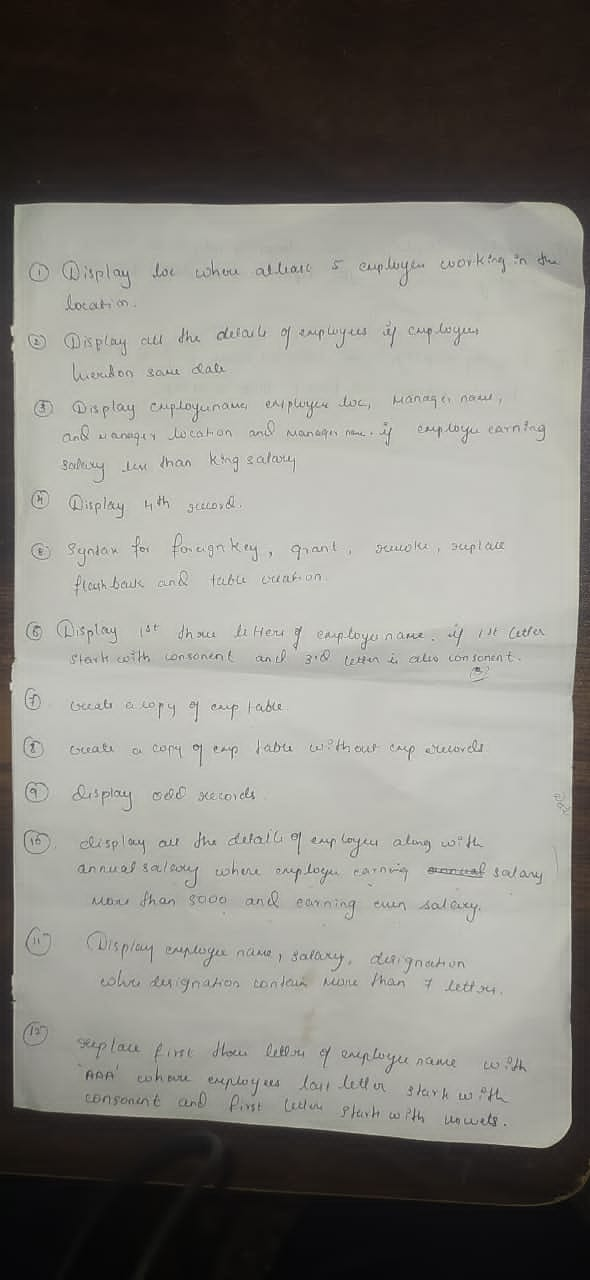 ① Display loc where atleast 5 employee working in the
location.
② Display all the details of employees if employees
hiredon same date
③ Display employeename, employee loc, Manager name,
and Manager location and Manager name. if employee earning
salary less than King salary
④ Display 4th record.
Syntax for foreign key, grant, revoke, replace
flashback and table creation.
⑥ Display 1st three letters of employee name. if 1st letter
starts with consonent and 3rd letter is also consonent.
⑦ create a copy of emp table.
⑧ create a copy of emp table without emp records
⑨ display odd records.
⑩ display all the details of employees along with
annual salary where employee earning annual salary
more than 3000 and earning even salary.
⑪ Display employee name, salary, designation
where designation contain more than 7 letters.
⑫ replace first three letters of employee name with
'AAA' where employees last letter starts with
consonent and first letter starts with vowels.